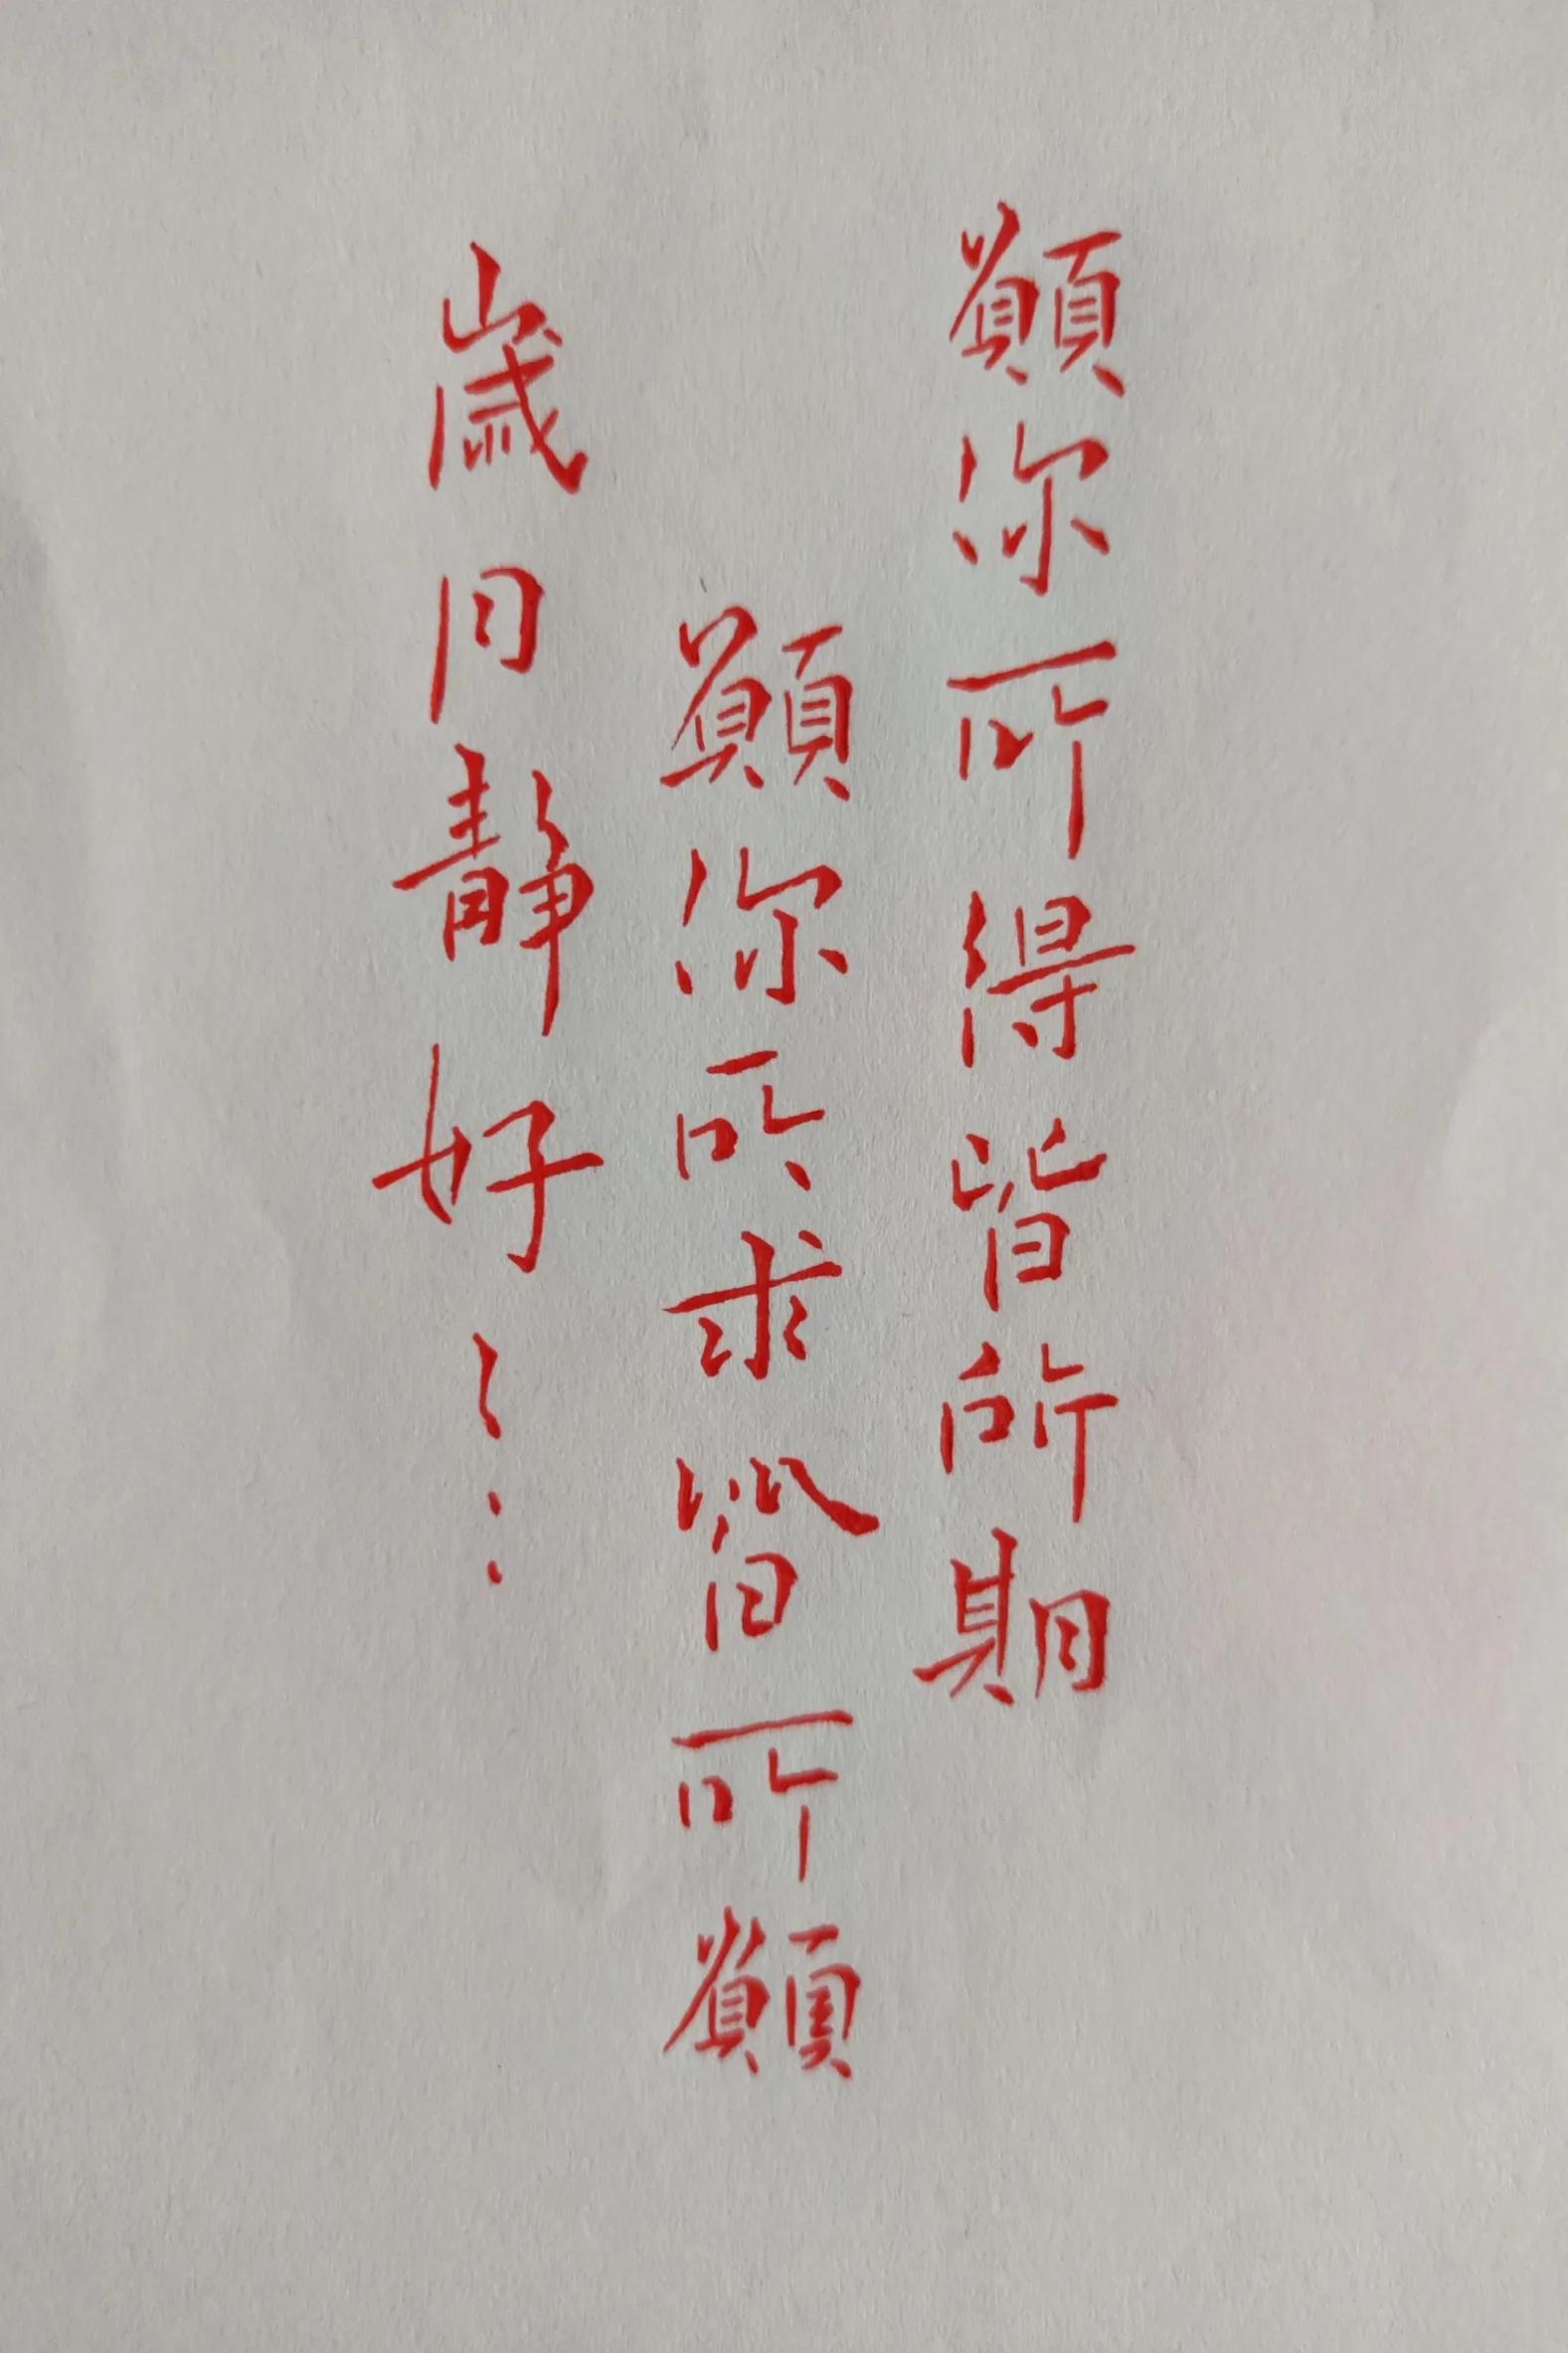 願你所得皆所期
願你所求皆所願
歲月靜好……